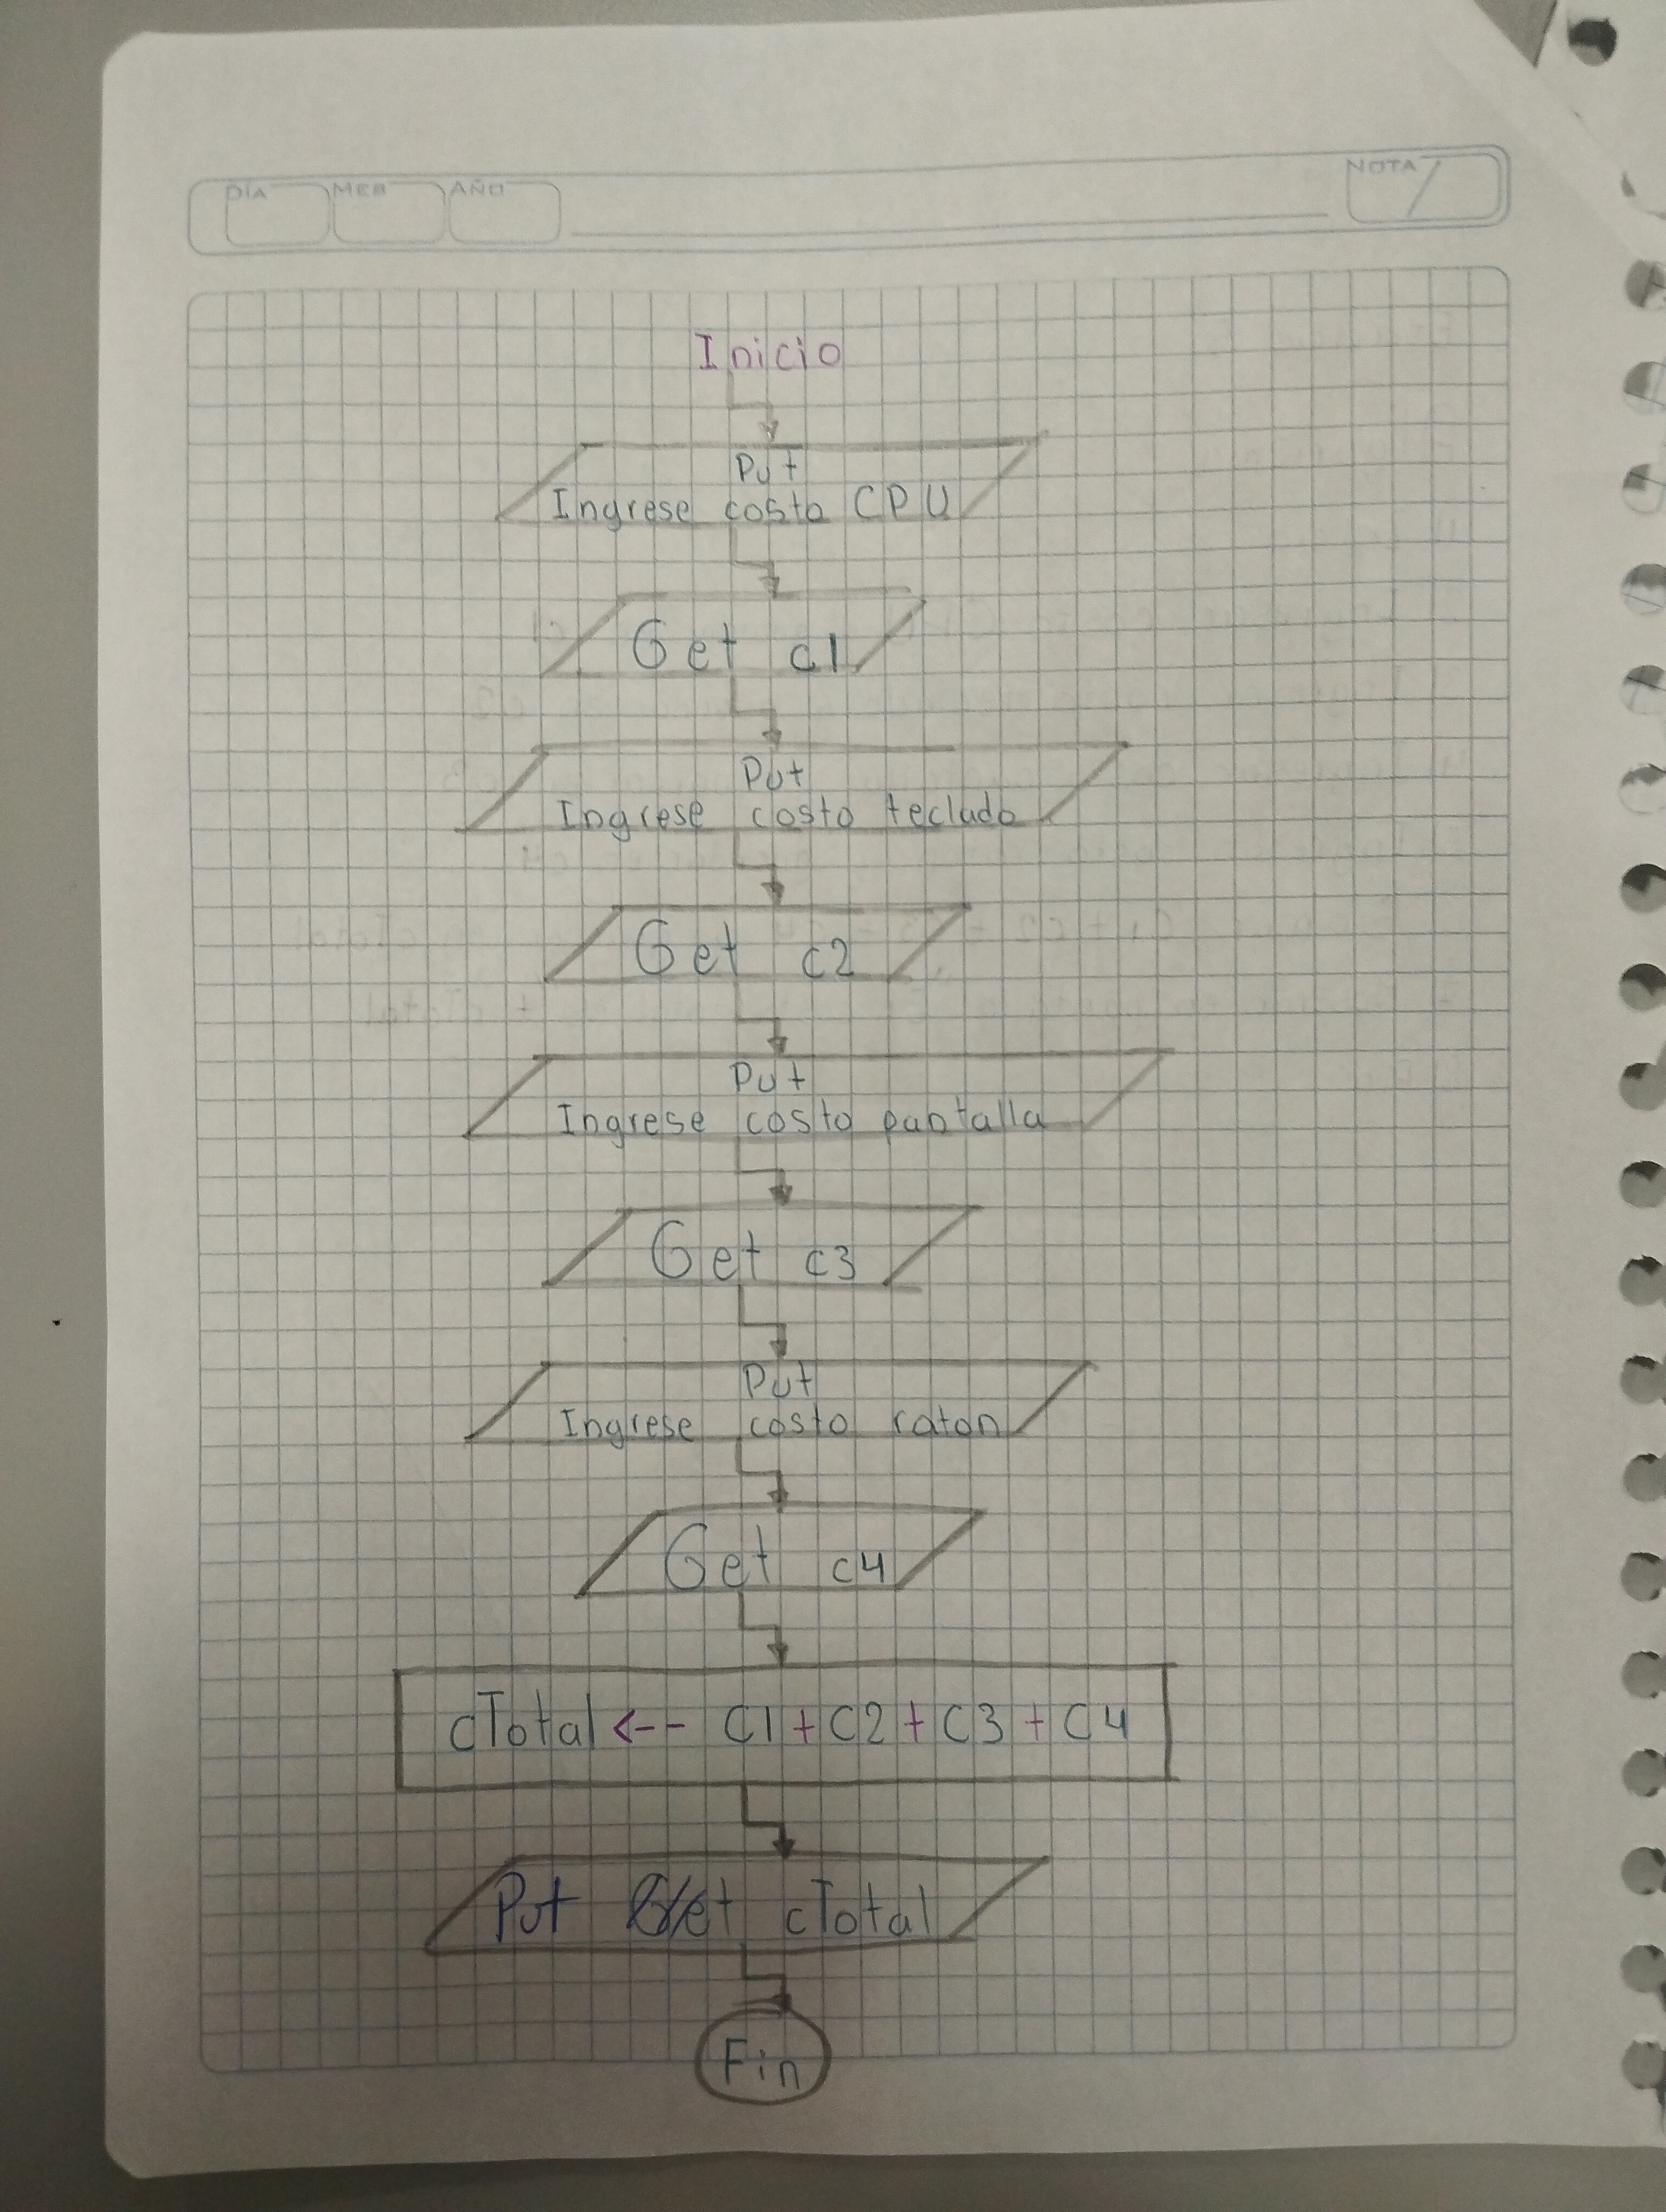 DÍA MES AÑO NOTA
Inicio
Put
Ingrese costo CPU
Get c1
Put
Ingrese costo teclado
Get c2
Put
Ingrese costo pantalla
Get c3
Put
Ingrese costo raton
Get c4
cTotal <-- C1 + C2 + C3 + C4
Put Get cTotal
Fin